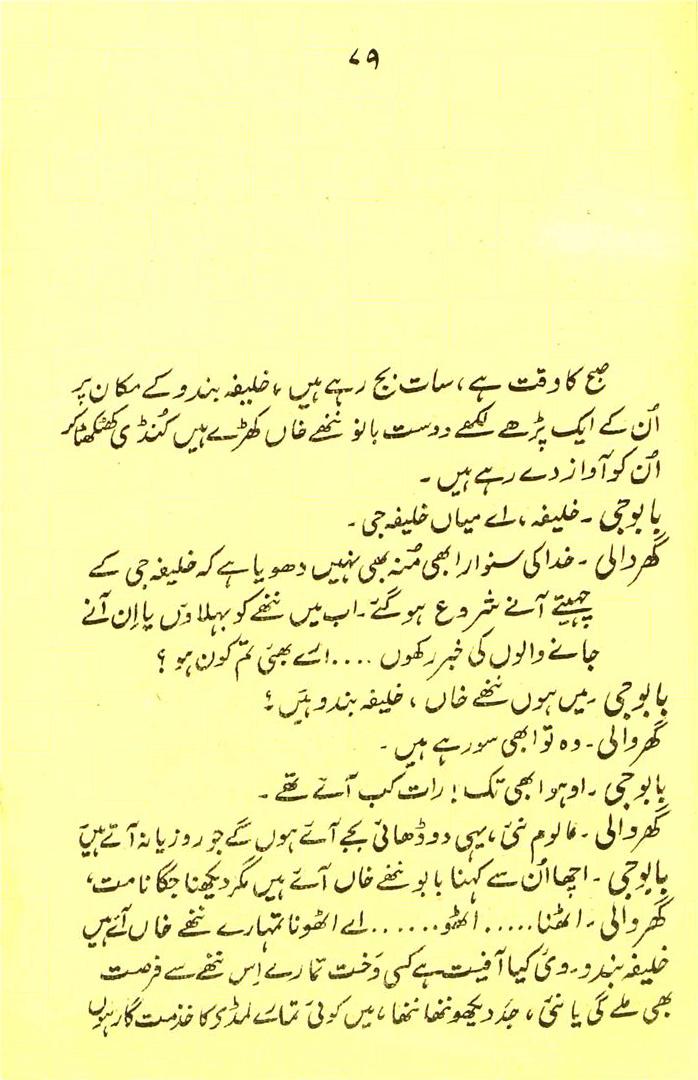 ۷۹
صبح کا وقت ہے، سات بج رہے ہیں، خلیفہ بندو کے مکان پر
اُن کے ایک پڑھے لکھے دوست بابو ننھے خاں کھڑے ہیں کُنڈی کھٹکھٹا کر
اُن کو آواز دے رہے ہیں۔
بابوجی۔ خلیفہ، اے میاں خلیفہ جی۔
گھروالی۔ خدا کی سنوار ابھی مُنہ بھی نہیں دھویا ہے کہ خلیفہ جی کے
چہیتے آنے شروع ہو گئے۔ اب میں ننھے کو بہلاؤں یا اِن آنے
جانے والوں کی خبر رکھوں .... اے بھئی تم کون ہو؟
بابوجی۔ میں ہوں ننھے خاں، خلیفہ بندو ہیں؟
گھروالی۔ وہ تو ابھی سو رہے ہیں۔
بابوجی۔ اوہو ابھی تک! رات کب آئے تھے۔
گھروالی۔ مالوم نئی، یہی دو ڈھائی بجے آئے ہوں گے جو روزیانہ آتے ہیں
بابوجی۔ اچھا اُن سے کہنا بابو ننھے خاں آئے ہیں مگر دیکھنا جگانا مت،
گھروالی۔ اٹھنا ..... اٹھو ...... اے اٹھونا تمہارے ننھے خاں آئے ہیں
خلیفہ بندو۔ وئی کیا آفیت ہے کسی وَخت تمارے اِس ننھے سے فرصت
بھی ملے گی یا نئی، جد دیکھو ننھا ننھا، میں کوئی تمارے لمڈی کا خذمت گار ہوں